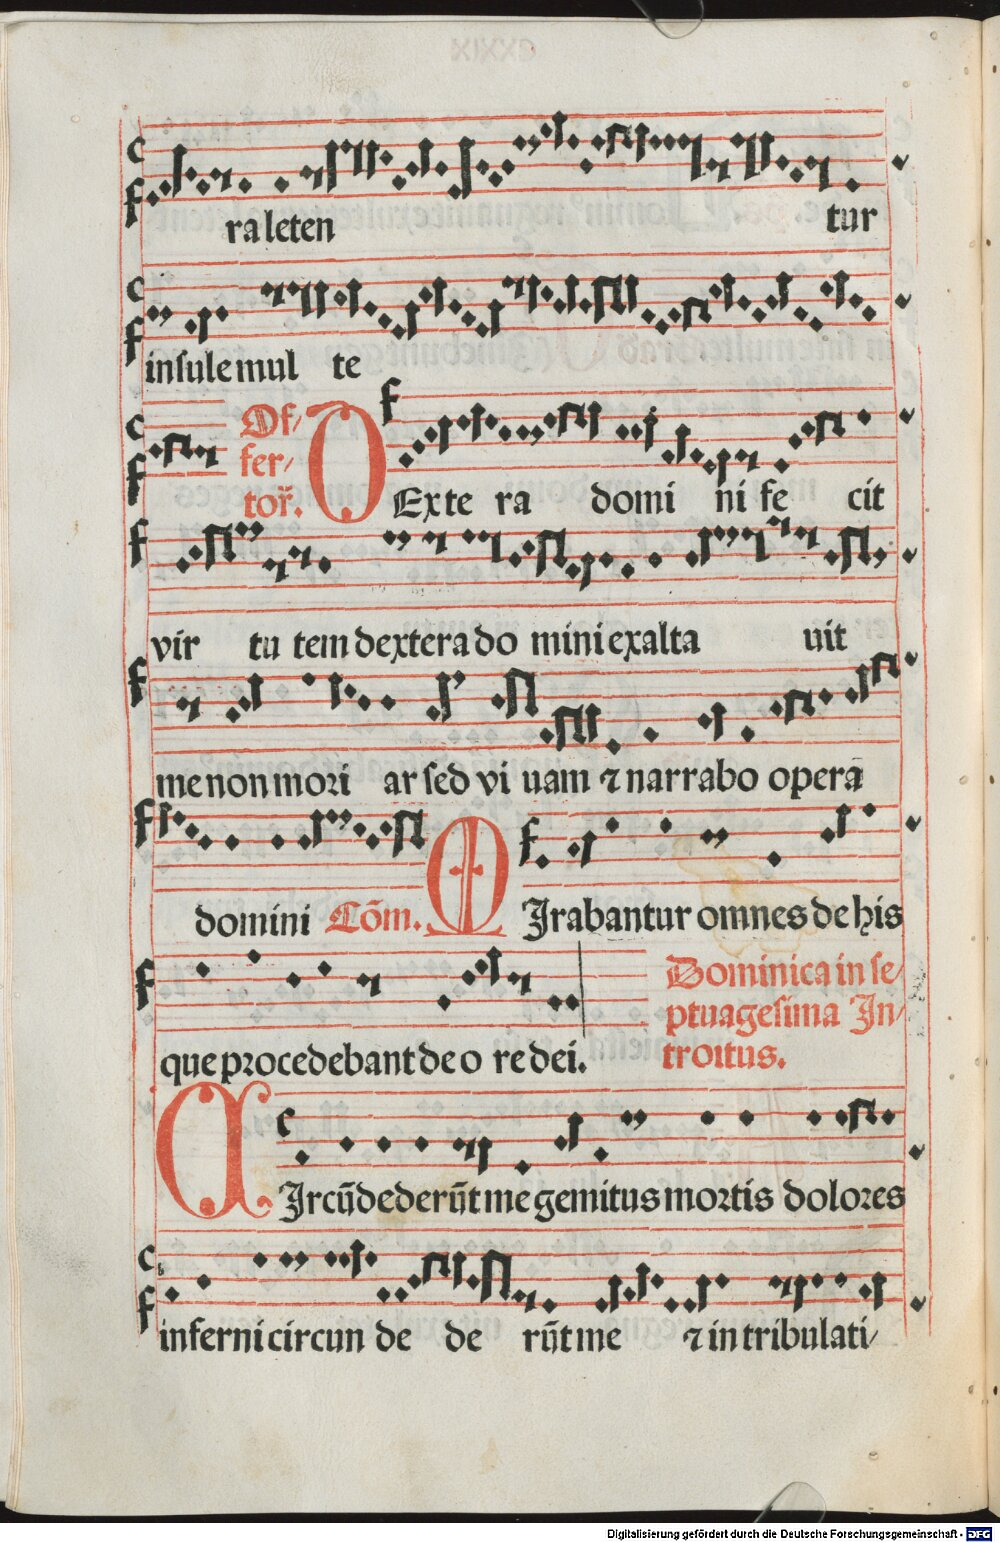 ra leten tur
insule mul te
Offertor̃.
DExte ra domi ni fe cit
vir tu tem dextera do mini exalta uit
me non mori ar sed vi uam ⁊ narrabo opera
domini Cōm. MIrabantur omnes de his
que procedebant de o re dei.
Dominica in se/
ptuagesima In/
troitus.
CIrcūdederūt me gemitus mortis dolores
inferni circun de de rūt me ⁊ in tribulati/
Digitalisierung gefördert durch die Deutsche Forschungsgemeinschaft - DFG